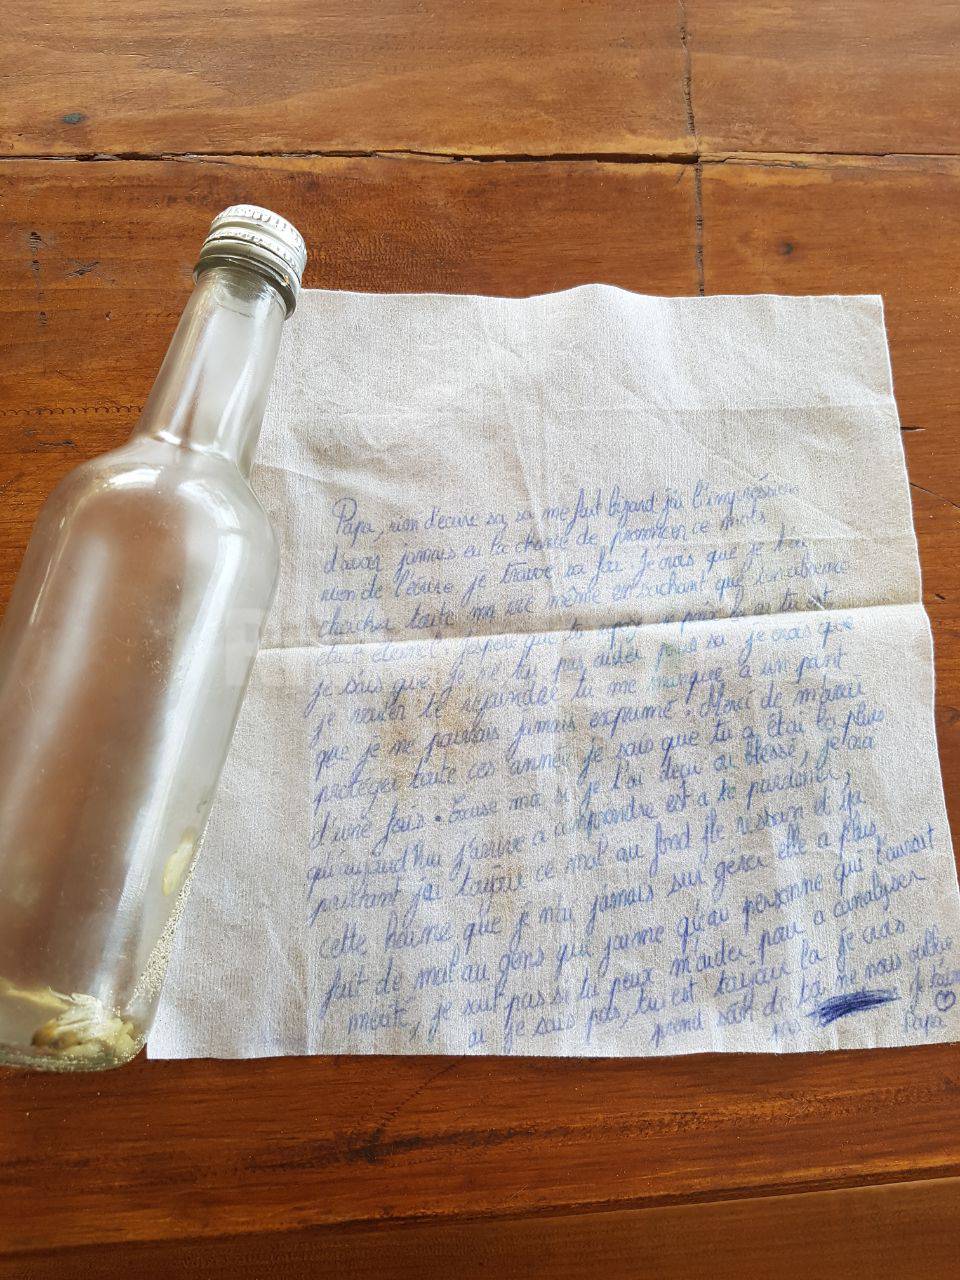 Papa, rien d'écrire sa, sa me fait bizard j'ai l'impression
d'avoir jamais eu la chance de prononcer ce mots
rien de l'écrire je trouve sa fou Je crois que je t'en
chercher toute ma vie même en sachant que
était éternel. J'espère que tu
je sais que je ne tu pas aider pour sa je crois que
je vouler te rejoindre tu me manque a un point
que je ne pourrais jamais exprimé. Merci de m'avoir
protéger toute ces année je sais que tu a étai la plus
d'une fois. Excuse moi si je t'ai déçu ou blessé, je
qu'aujourd'hui j'arrive a comprendre est a te pardoner,
pourtant j'ai toujour ce mal au fond
cette haine que je n'ai jamais su gérer elle a plus
fait de mal au gens qui j'aime qu'au personne qui l'aurait
mérité, je sait pas si tu peux m'aider pour a canalyser
ou je sais pas, tu est toujour la je crois
prend soin de toi ne nous oublie
pas Je t'aime
Papa